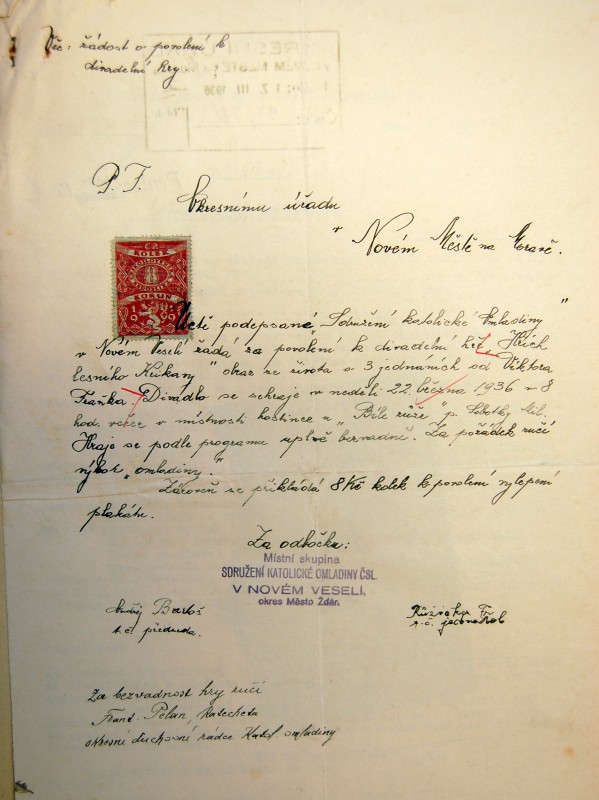 Věc: žádost o povolení k
divadelní hry.
P. T.
Okresnímu úřadu
v Novém Městě na Moravě.
KOLEK
8
KORUN
19
Uctě podepsané „Sdružení katolické Omladiny"
v Novém Veselí žádá za povolení k divadelní hře „Hřích
lesního Krukary" obraz ze života o 3 jednáních od Viktora
Fraňka. Divadlo se sehraje v neděli 22. března 1936 v 8
hod. večer v místnosti hostince u „Bílé růže" p. Sobotky
Hraje se podle programu úplně bezvadně. Za pořádek ručí
výbor „omladiny."
Zároveň se přikládá 8 Kč kolek k povolení vylepení
plakátu.
Za odbočku:
Místní skupina
SDRUŽENÍ KATOLICKÉ OMLADINY ČSL.
V NOVÉM VESELÍ,
okres Město Žďár.
Ondřej Bartoš
t. č. předseda.
Růžička F.
t. č. jednatel
Za bezvadnost hry ručí
Frant. Pelan, katecheta
okresní duchovní rádce Katol. omladiny